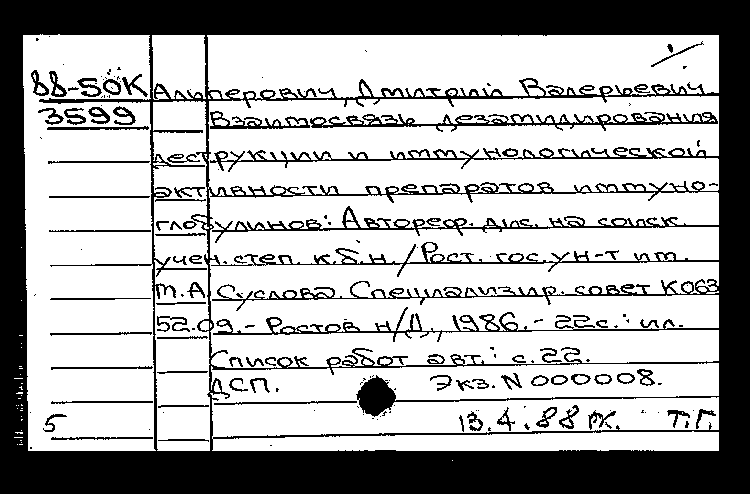 88-50К Альперович, Дмитрий Валерьевич.
3599 Взаимосвязь дезамидирования
деструкции и иммунологической
активности препаратов иммуно-
глобулинов: Автореф. дис. на соиск.
учен. степ. к.б.н. / Рост. гос. ун-т им.
М.А. Суслова. Специализир. совет К063
52.09. - Ростов н/Д., 1986. - 22 с.: ил.
Список работ авт.: с. 22.
ДСП. Экз. N 000008.
5 13.4.88 РХ. Т.Г.